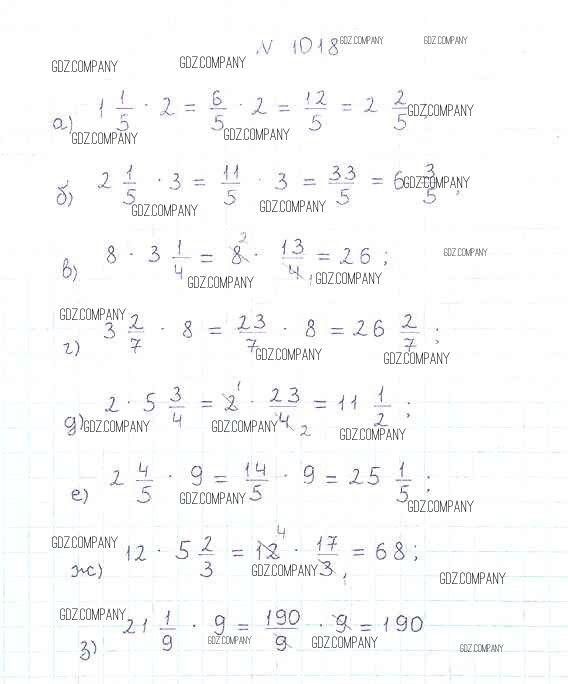 N 1018 GDZ.COMPANY GDZ.COMPANY
GDZ.COMPANY GDZ.COMPANY
а) 1 1/5 · 2 = 6/5 · 2 = 12/5 = 2 2/5 GDZ.COMPANY
GDZ.COMPANY GDZ.COMPANY
б) 2 1/5 · 3 = 11/5 · 3 = 33/5 = 6 3/5 ; GDZ.COMPANY
GDZ.COMPANY GDZ.COMPANY
в) 8 · 3 1/4 = 8 2 · 13/4 1 = 26 ; GDZ.COMPANY
GDZ.COMPANY GDZ.COMPANY
GDZ.COMPANY
г) 3 2/7 · 8 = 23/7 · 8 = 26 2/7 ;
GDZ.COMPANY GDZ.COMPANY
д) 2 · 5 3/4 = 2 1 · 23/4 2 = 11 1/2 ;
GDZ.COMPANY GDZ.COMPANY GDZ.COMPANY
е) 2 4/5 · 9 = 14/5 · 9 = 25 1/5 ;
GDZ.COMPANY GDZ.COMPANY
GDZ.COMPANY
ж) 12 · 5 2/3 = 12 4 · 17/3 1 = 68 ;
GDZ.COMPANY GDZ.COMPANY
GDZ.COMPANY
з) 21 1/9 · 9 = 190/9 · 9 = 190
GDZ.COMPANY GDZ.COMPANY GDZ.COMPANY